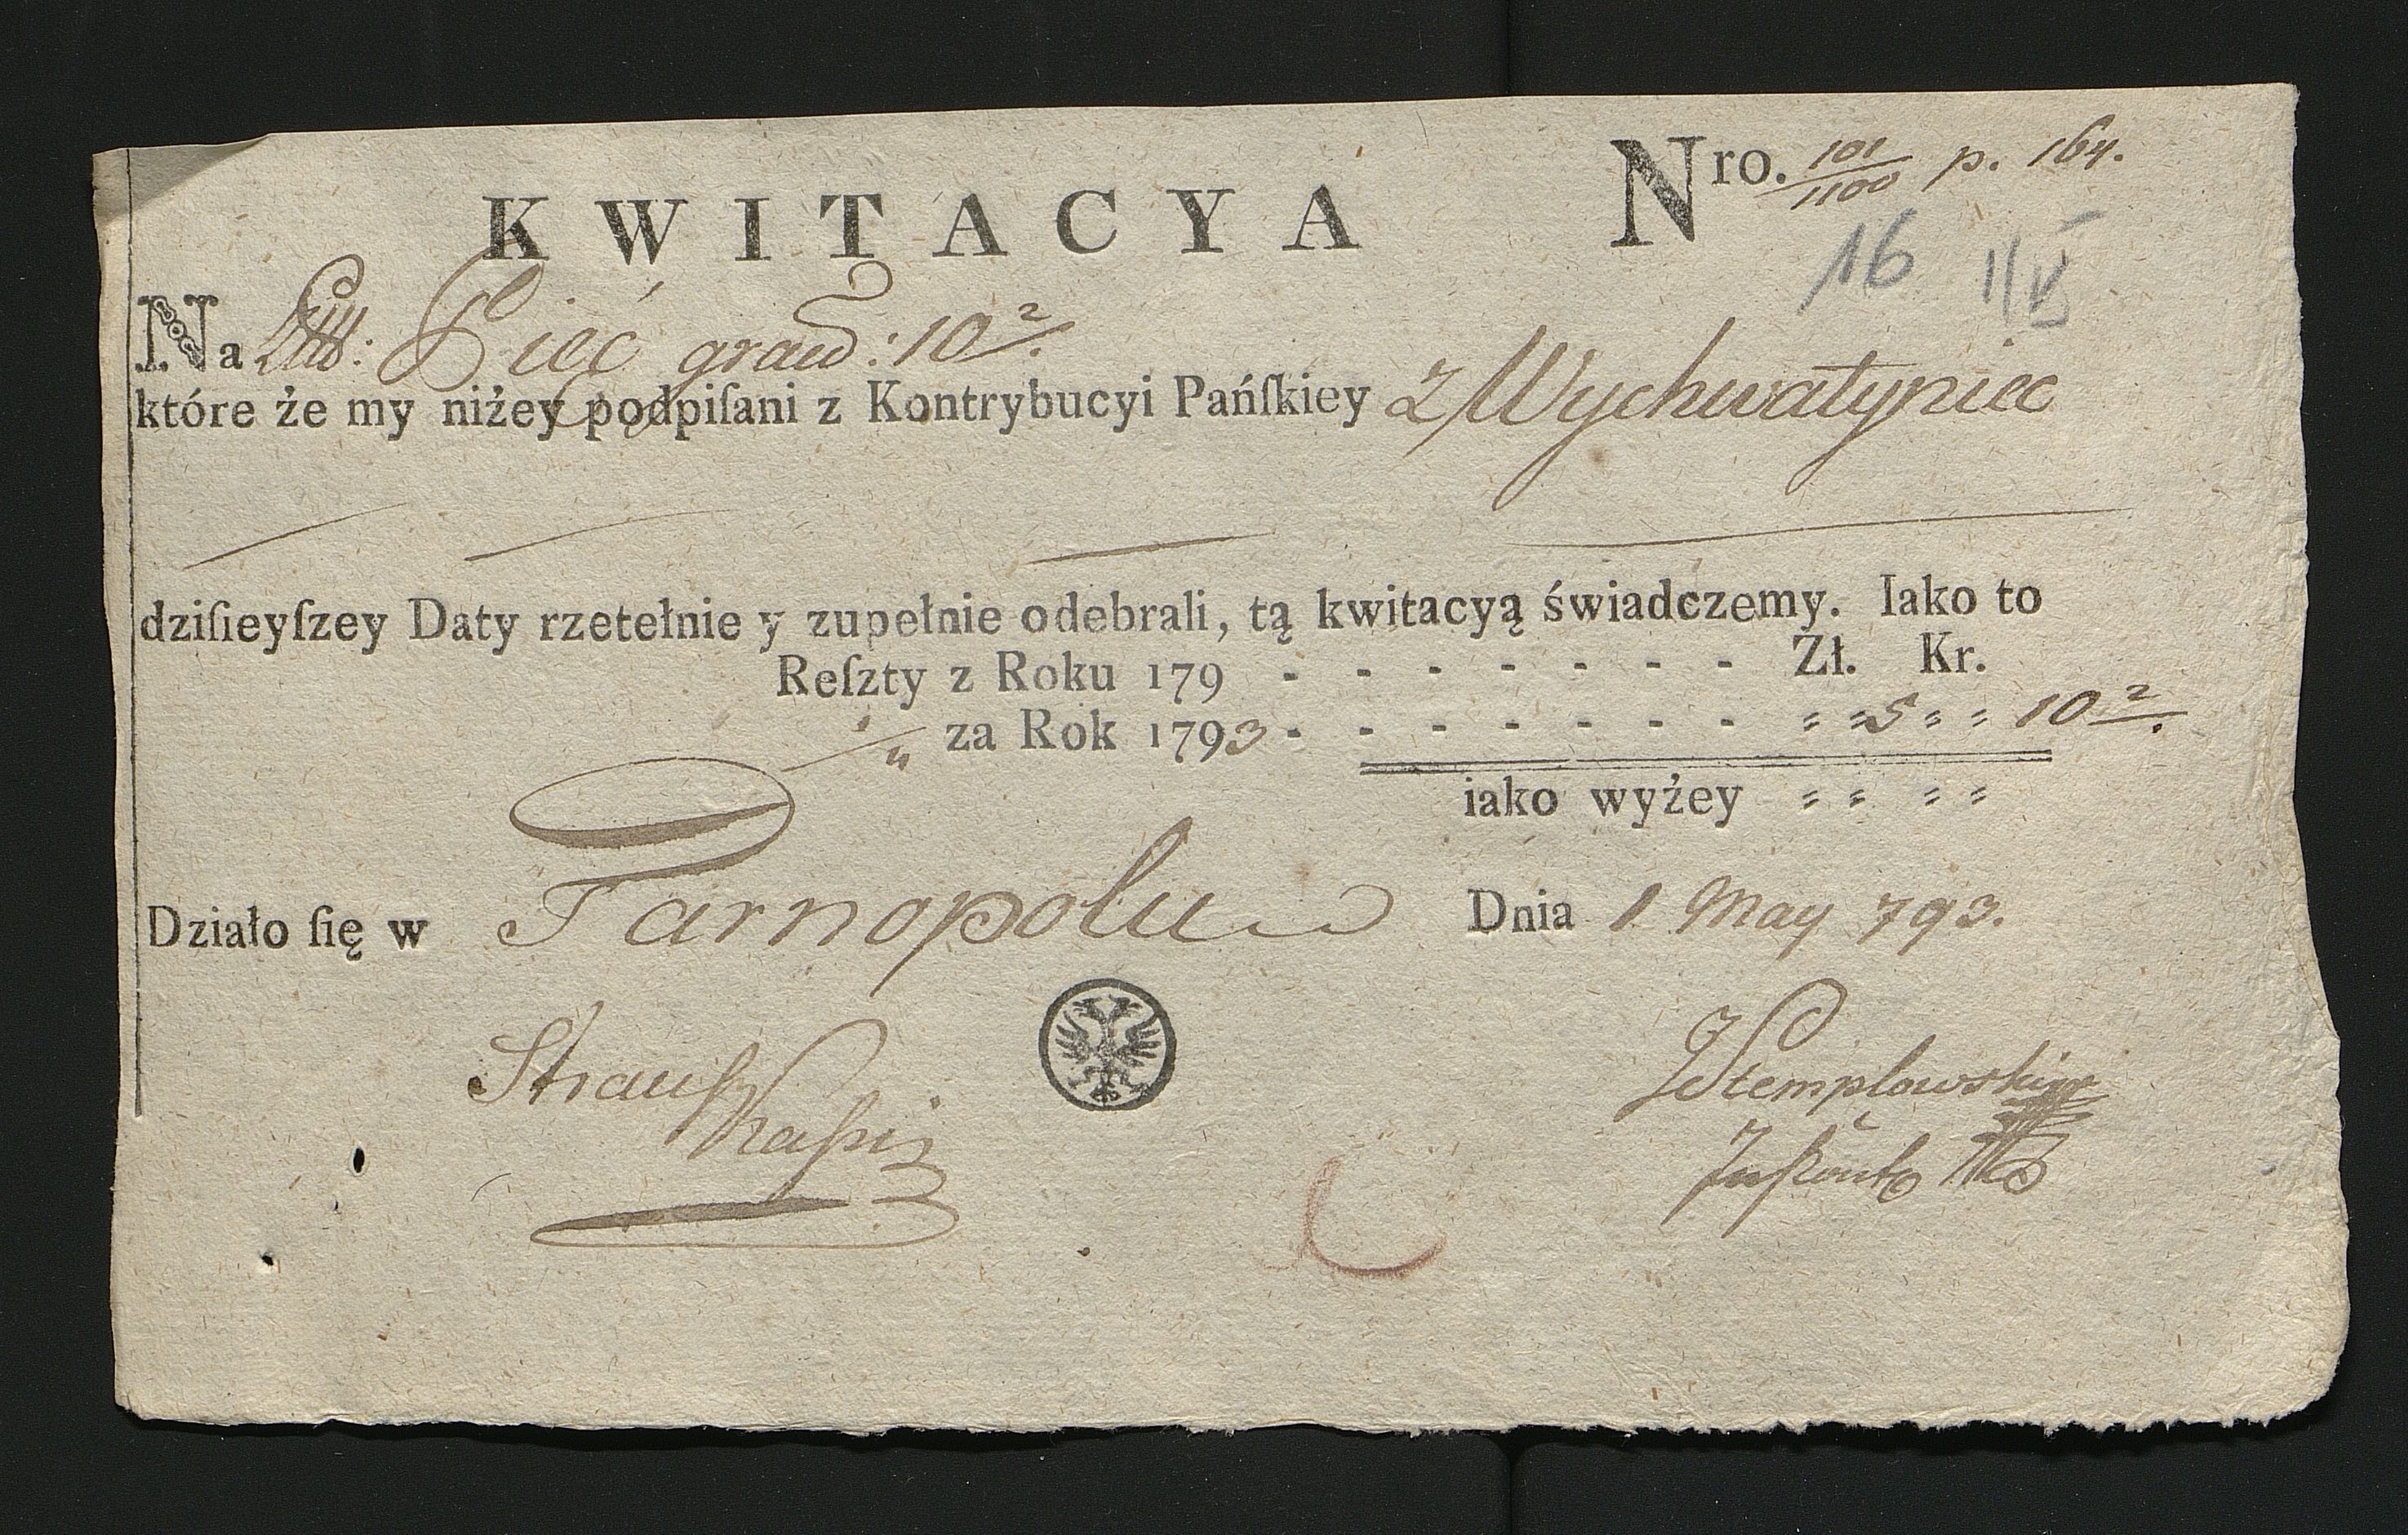 Nro. 101/1100 p. 164.
KWITACYA
16 II/V
Na Pięć : 10 2/.
które że my niżey podpiſani z Kontrybucyi Pańſkiey z Wychwatyniec
dziſieyſzey Daty rzetełnie y zupełnie odebrali, tą kwitacyą świadczemy. Iako to
Reſzty z Roku 179 - - - - - - - Zł. Kr.
" za Rok 1793 - - - - - - - " " 5 " " 10 2/.
iako wyżey " " " "
Działo ſię w Tarnopolu Dnia 1 May 793.
Strauſs
Stemplowski